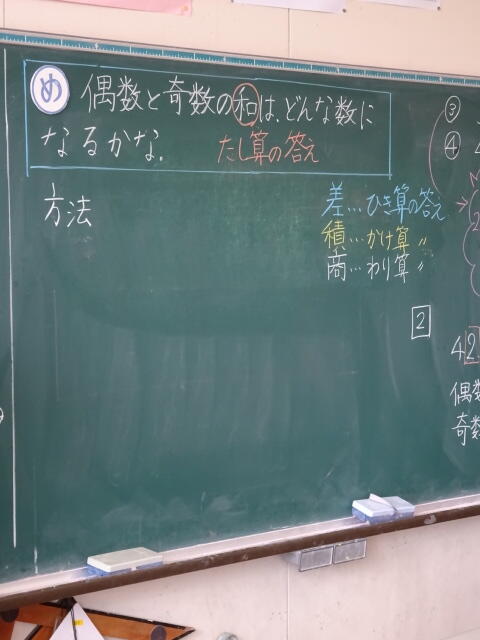 め 偶数と奇数の和は、どんな数に
なるかな。 たし算の答え
方法
差…ひき算の答え
積…かけ算 〃
商…わり算 〃
③
④
2
42
偶数
奇数